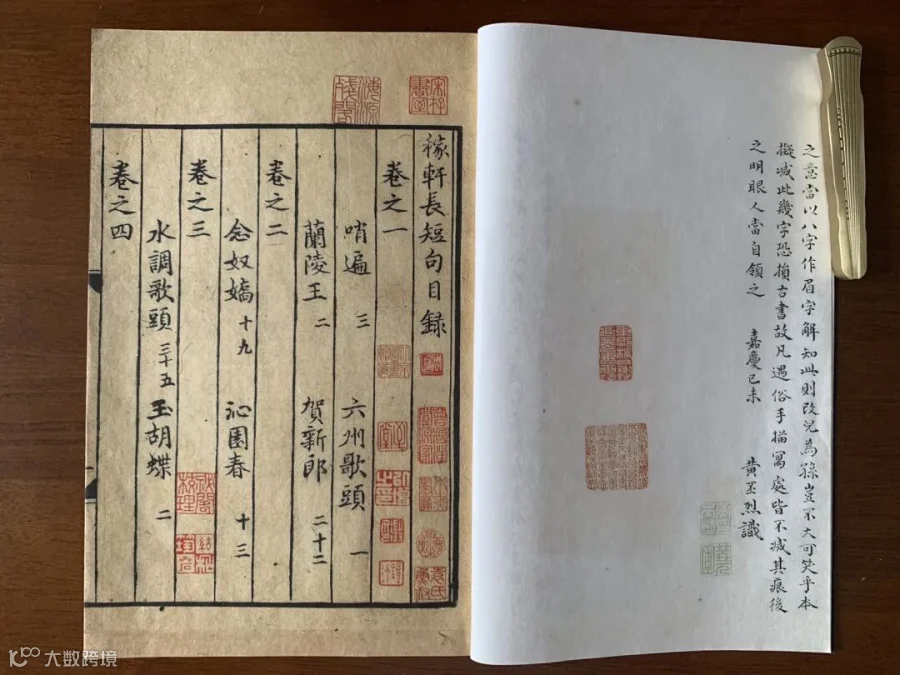 之意當以八字作眉字解知此則改兒為孫豈不大可笑乎本
擬滅此幾字恐損古書故凡遇俗手描寫處皆不滅其痕後
之明眼人當自領之 嘉慶己未 黃丕烈識
宋存書室
海源殘閣
稼軒長短句目録
卷之一
哨遍 三 六州歌頭 一
蘭陵王 二 賀新郎 二十二
卷之二
念奴嬌 十九 沁園春 十三
卷之三
水調歌頭 三十五 玉胡蝶 二
卷之四
大数跨境